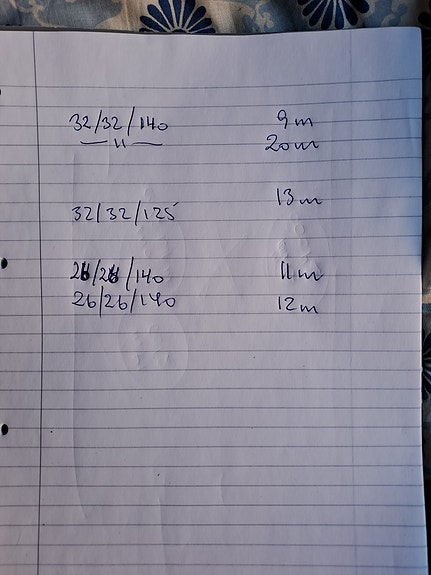 32/32/140 9m
—"— 20m
32/32/125 13m
26/26/140 11m
26/26/140 12m